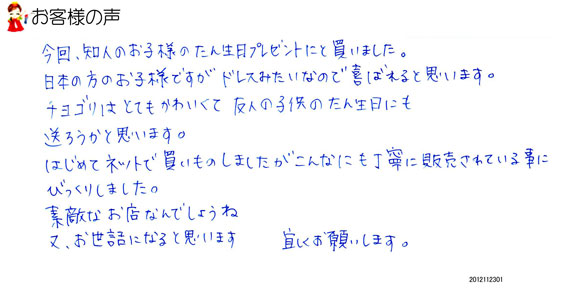 お客様の声
今回、知人のお子様のたん生日プレゼントにと買いました。
日本の方のお子様ですがドレスみたいなので喜ばれると思います。
チョゴリはとてもかわいくて友人の子供のたん生日にも
送ろうかと思います。
はじめてネットで買いものしましたがこんなにも丁寧に販売されている事に
びっくりしました。
素敵なお店なんでしょうね
又、お世話になると思います　宜しくお願いします。
2012112301